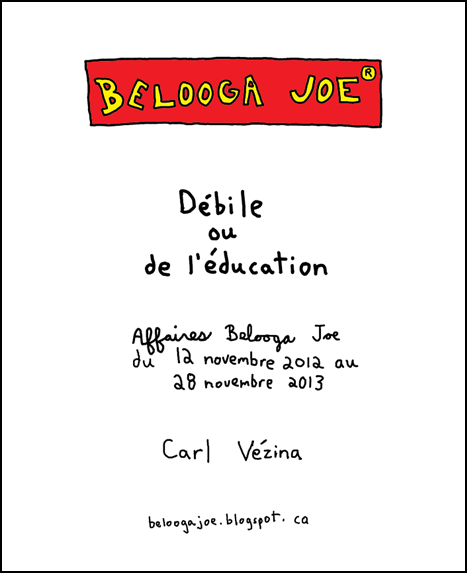 BELOOGA JOE®
Débile
ou
de l'éducation
Affaires Belooga Joe
du 12 novembre 2012 au
28 novembre 2013
Carl Vézina
beloogajoe.blogspot.ca